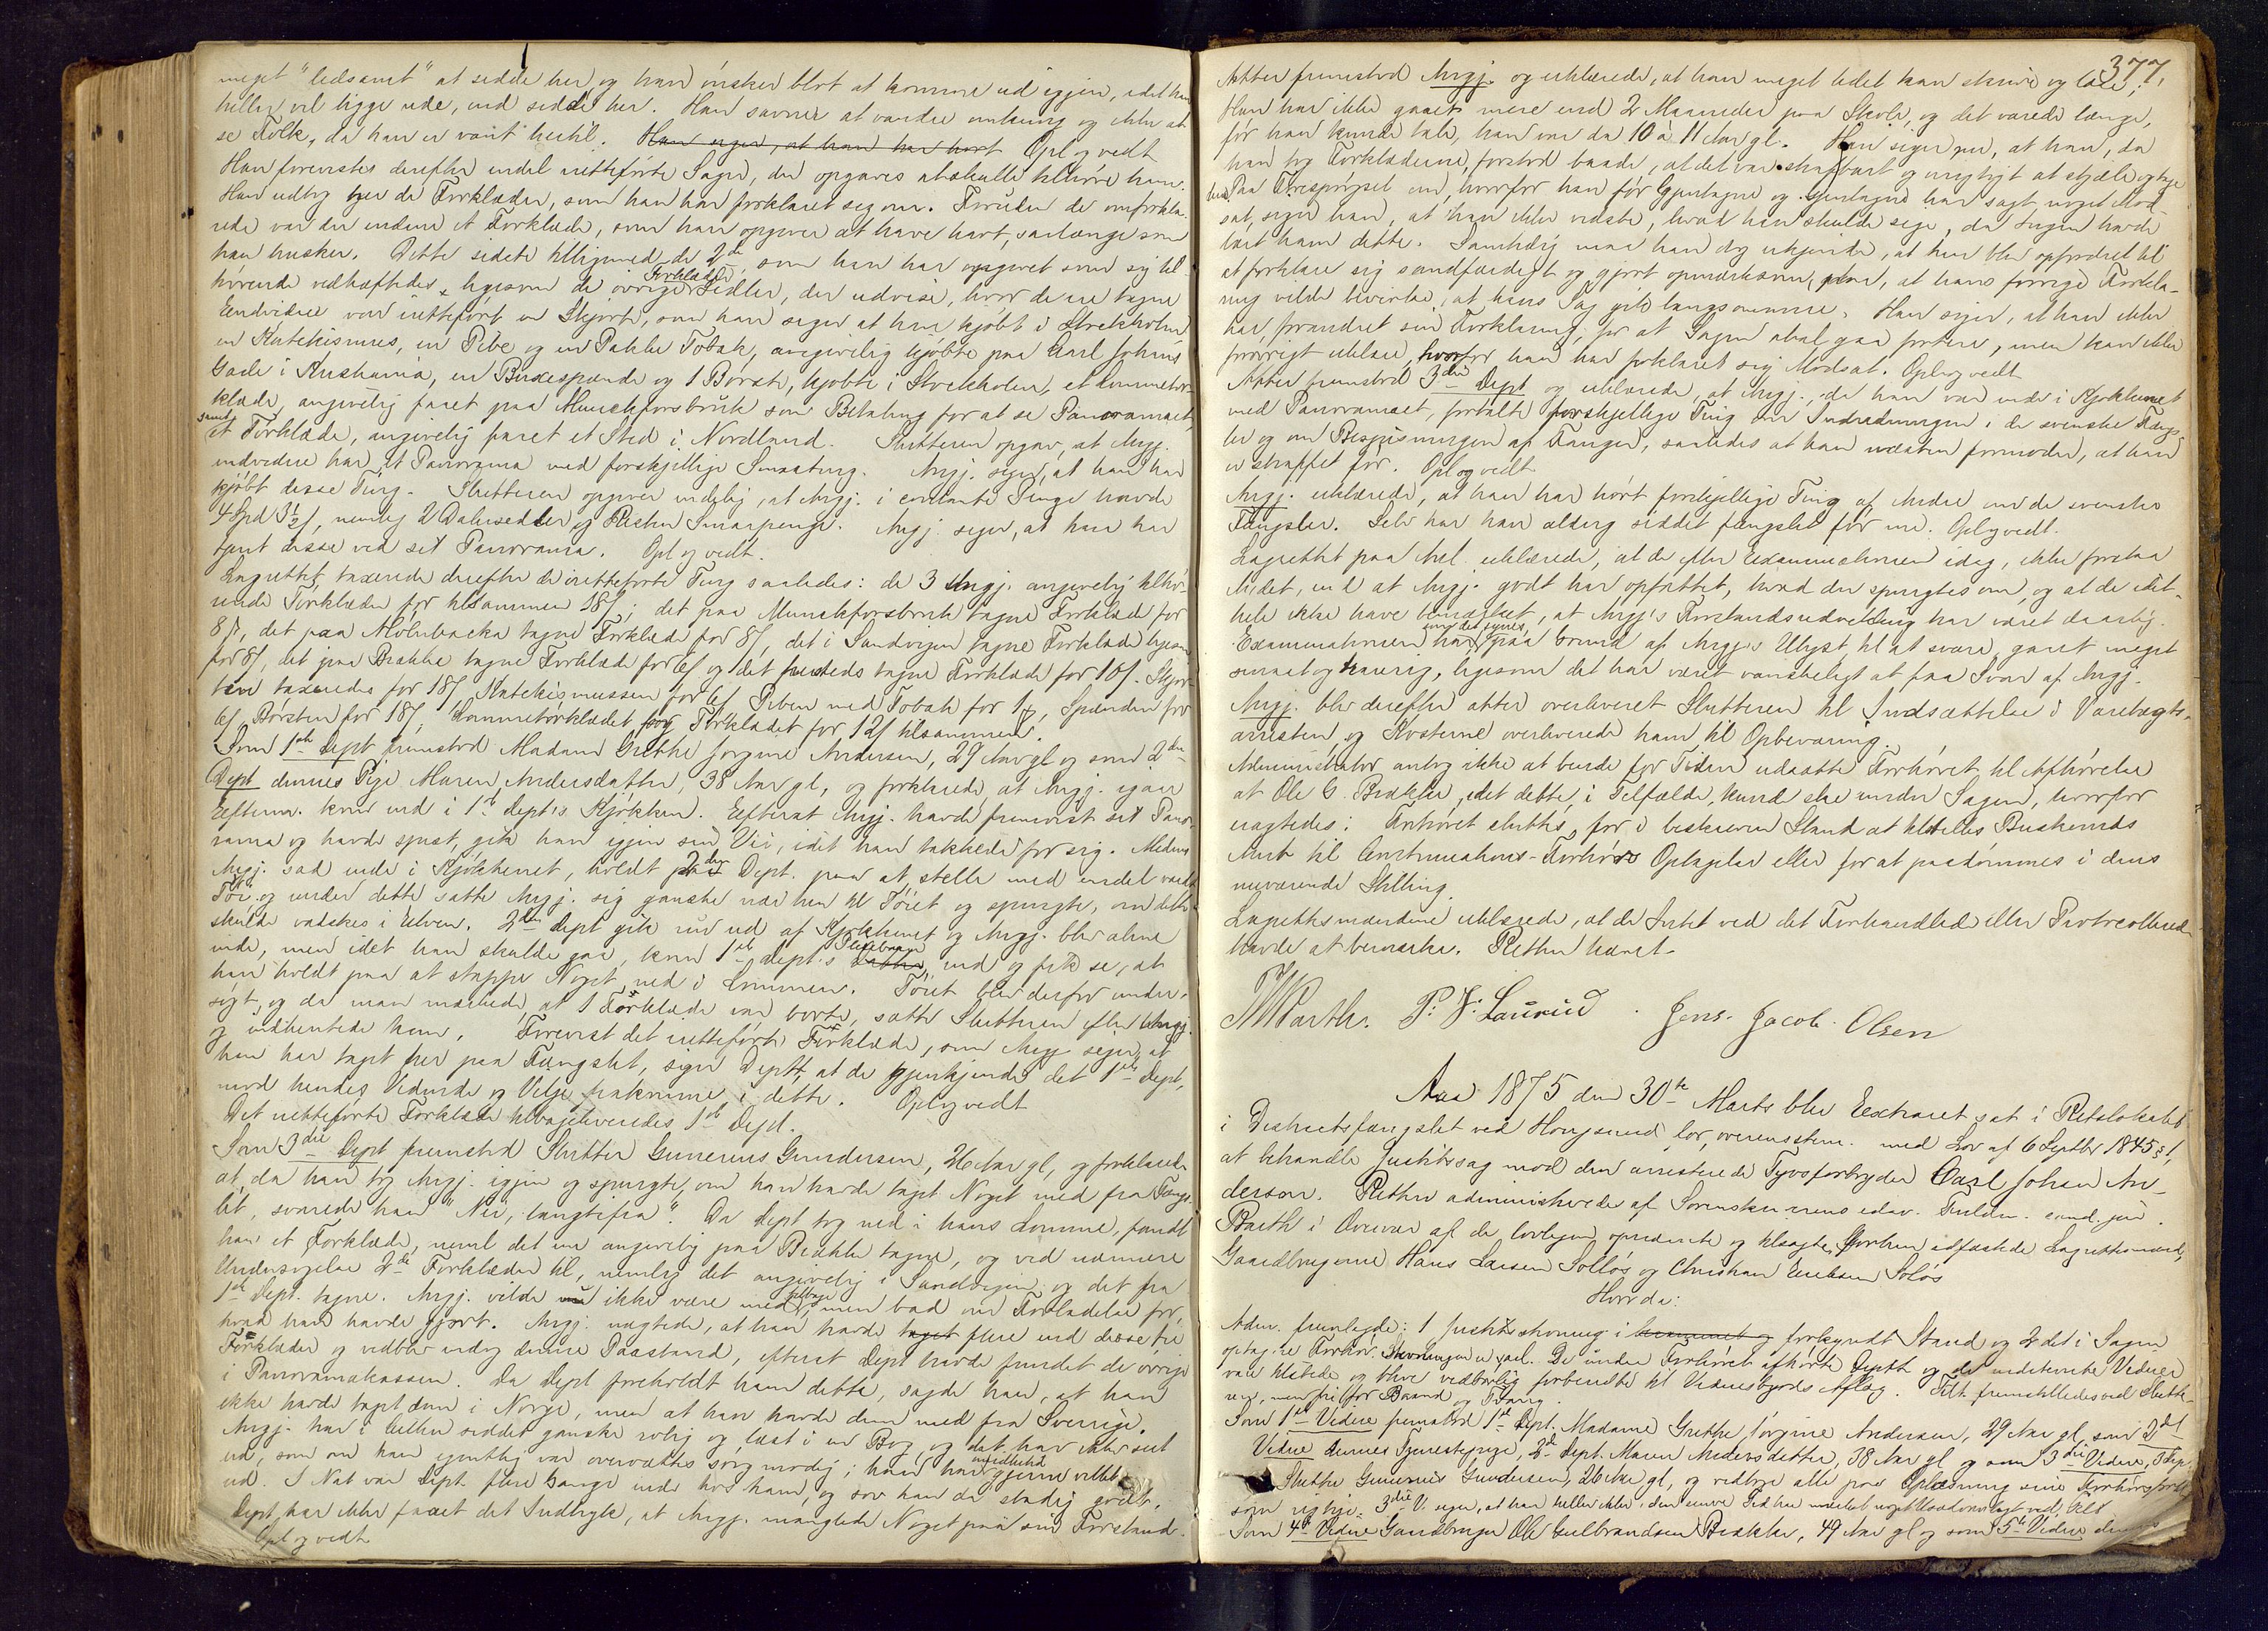 meget "ledsamt" at sidde her og han ønsker blot at komme ud igjen, idet han
heller vil ligge ude, end sidde her. Han savner at vandre omkring og ikke at
se Folk, da han er vant hertil. Han siger, at han har hørt Opl og vedt
Han forevistes derefter endel rettførte Sager, der opgaves at skulle tilhøre ham.
Han udtog her de Forklæder, som han har forklaret sig om. Foruden de omforkla-
rede var der endnu et Forklæde, som han opgiver at have havt, saalænge som
han husker. Dette sidste tilligemed de 2de, som han har opgivet som sig til-
hørende vedhæftedes, ligesom de øvrige Forklæder, Sedler, der udvise, hvor de ere tagne
Endvidere var rettført en Skjorte, som han siger at have kjøbt i Stockholm
en Katekismus, en Pibe og en Pakke Tobak, angivelig kjøbte paa Carl Johans
Gade i Kristiania, en Buxespænde og 1 Børste, kjøbte i Stockholm, et Lommetør-
klæde, angivelig faaet paa Munckforsbruk som Betaling for at se Panoramaet,
samt et Forklæde, angivelig faaet et Sted i Nordland. Slutteren opgav, at Angj.
endvidere har et Panorama med forskjellige Smaating. Angj. siger, at han har
kjøbt disse Ting. Slutteren opgiver endelig, at Angj. i contante Penge havde
4 Spd 3½ ß, nemlig 2 Dalersedler og Resten Smaapenge. Angj. siger, at han har
tjent disse ved sit Panorama. Opl og vedt.
Lagrettet taxerede derefter de rettførte Ting saaledes: de 3 Angj. angivelig tilhø-
rende Forklæder for tilsammen 18ß; det paa Munckforsbruk tagne Forklæde for
8ß, det paa Molnbacka tagne Forklæde for 8ß, det i Sandvigen tagne Forklæde ligesom
for 8ß, det paa Brække tagne Forklæde for 6ß og det hersteds tagne Forklæde for 10ß. Skjor-
ten taxeredes for 18ß Katekismussen for 6ß Piben med Tobak for 1, Spænden for
6ß Børsten for 18ß, Lommetørklædet og Forklædet for 12ß tilsammen.
Som 1ste Dept fremstod Madam Grethe Jørgine Andersen, 29 Aar gl og som 2den
Dept dennes Pige Maren Andersdatter, 38 Aar gl, og forklarede, at Angj. igaar
Efterm. kom ind i 1ste Dept's Kjøkken. Efterat Angj. havde fremvist sit Pano-
rama og havde spist, gik han igjen sin Vei, idet han takkede for sig. Medens
Angj. sad inde i Kjøkkenet, holdt 2den Dept. paa at stelle med endel vaadt
Tøi, og under dette satte Angj. sig ganske nær hen til Tøiet og spurgte, om dette
skulde vadskes i Elven. 2den Dept gik nu ud af Kjøkkenet og Angj. blev alene
inde, men idet han skulde gaa, kom 1ste Dept's Datter Pleiebarn ind og fik se, at
han holdt paa at stappe Noget ned i Lommen. Tøiet blev derfor under-
søgt, og da man mærkede, at 1 Forklæde var borte, satte Slutteren efter Angj.
og indhentede ham. Forevist det rettførte Forklæde, som Angj siger, at
han har taget her paa Fængslet, siger Deptt, at de gjenkjende det 1ste Dept,
mod hendes Vidende og Vilje frakomne i dette. Opl og vedt
Det rettførte Forklæde tilbageleveredes 1ste Dept.
Som 3die Dept fremstod Slutter Gunerius Gundersen, 26 Aar gl, og forklarede
at, da han tog Angj. igjen og spurgte, om han havde taget Noget med fra Fængs-
let, svarede han "Nei, langtifra". Da Dept tog ned i hans Lomme, fandt
han et Forklæde, neml det ene angivelig paa Brække tagne, og ved nærmere
Undersøgelse 2de Forklæder til, nemlig det angivelig i Sandvigen og det fra
1ste Dept. tagne. Angj. vilde nu ikke være med tilbage, men bad om Forladelse for,
hvad han havde gjort. Angj. nægtede, at han havde taget flere end disse tre
Forklæder og vedblev endog denne Paastand, efterat Dept havde fundet de øvrige
i Panoramakassen. Da Dept foreholdt ham dette, sagde han, at han
ikke havde taget dem i Norge, men at han havde dem med fra Sverige.
Angj. har i Cellen siddet ganske rolig og læst i en Bog, og det har ikke seet
ud, som om han egentlig var overvættes sørgmodig; han har imidlertid gjerne villet
ud. I Nat var Dept. flere Gange inde hos ham, og sov han da stadig godt.
Dept har ikke faaet det Indtryk, at Angj. manglede Noget paa sin Forstand.
Opl og vedt
377.
Atter fremstod Angj. og erklærede, at han meget lidet kan skrive og læse.
Han har ikke gaaet mere end 2 Maaneder paa Skole, og det varede længe,
før han kunde tale, han var da 10 à 11 Aar gl. Han siger nu, at han, da
han tog Forklæderne, forstod baade, at det var strafbart og urigtigt at stjæle og tage
Paa Forespørgsel om, hvorfor han før Gjentagne og Gjentagne har sagt noget Mod-
sat, siger han, at han ikke vidste, hvad han skulde sige, da Ingen havde
lært ham dette. Samtidig maa han dog erkjende, at han blev opfordret til
at forklare sig sandfærdigt og gjort opmærksom paa, at hans forrige Forkla-
ring vilde bevirke, at hans Sag gik langsommere. Han siger, at han ikke
har forandret sin Forklaring, for at Sagen skal gaa fortere, men kan ikke
forøvrigt erklære, hvorfor han har forklaret sig Modsat. Opl og vedt
Atter fremstod 3die Dept og erklærede, at Angj., da han var inde i Kjøkkenet
med Panoramaet, fortalte forskjellige Ting om Indredningen i de svenske Fængs-
ler og om Bespisningen af Fanger, saaledes at han næsten formoder, at han
er straffet før. Opl og vedt
Angj. erklærede, at han har hørt forskjellige Ting af Andre om de svenske
Fængsler. Selv har han aldrig siddet fængslet før nu. Opl og vedt.
Lagrettet paa Anl. erklærede, at de efter Examinationen idag, ikke forstaa
Andet, end at Angj. godt har opfattet, hvad der spurgtes om, og at de idet-
hele ikke have bemærket, at Angj's Forstandsudvikling har været daarlig.
Examinationen har, som det synes, paa Grund af Angj's Ulyst til at svare, gaaet meget
smaat og traurig, ligesom det har været vanskeligt at faa Svar af Angj.
Angj. blev derefter atter overleveret Slutteren til Indsættelse i Varetægts-
arresten, og Kosterne overleverede ham til Opbevaring.
Administrator antog ikke at burde for Tiden udsætte Forhøret til Afhørelse
af Ole G. Brække, idet dette, i Tilfælde, kunde ske under Sagen, hvorfor
eragtedes: Forhøret sluttes, for i beskreven Stand at tilstilles Buskeruds
Amt til Constitutions-Forhørs Optagelse eller for at paadømmes i dens
nuværende Stilling.
Lagrettesmændene erklærede, at de Intet ved det Forhandlede eller Protocollerede
havde at bemærke. Retten hævet.
P. J. Laurud. Jens. Jacob. Olsen
Aar 1875 den 30te Marts blev Extraret sat i Retslokalet
i Districtsfængslet ved Hougsund for, overensstem. med Lov af 6 Septbr 1845 § 1,
at behandle Justitssag mod den arresterede Tyvsforbryder Carl Johan An-
derson. Retten administreredes af Sorenskriverens edsv. Fuldm. cand. jur.
Barth i Overvær af de lovligen opnævnte og tilsagte, forhen edfæstede Lagrettesmænd,
Gaardbrugerne Hans Larsen Solløs og Christian Eriksen Soløs
Hvorda:
Adm. fremlagde: 1 Justitsstevning i forkyndt Stand og 2 det i Sagen
optagne Forhør. Stevningen er saal. De under Forhøret afhørte Deptt og de indstevnte Vidner
vare tilstede og bleve vedbørlig forberedte til Vidnesbyrds Aflæg. Tilt. fremstilledes ved Slutte-
ren, men fri for Baand og Tvang.
Som 1ste Vidne fremstod 1ste Dept. Madame Grethe Jørgine Andersen, 29 Aar gl, som 2det
Vidne dennes Tjenestepige, 2de Dept. Maren Andersdatter, 38 Aar gl og som 3die Vidne, 3 Dep.
Slutter Gunerius Gundersen, 26 Aar gl, og vedtog alle paa Oplæsning sine Forhørsforkl.
som rigtige. 3die V. siger, at han heller ikke i den senere Tid har mærket noget Usædvanligt ved Tilt
Som 4de Vidne Gaardbruger Ole Gulbrandsen Brække, 49 Aar gl og som 5te Vidne dennes